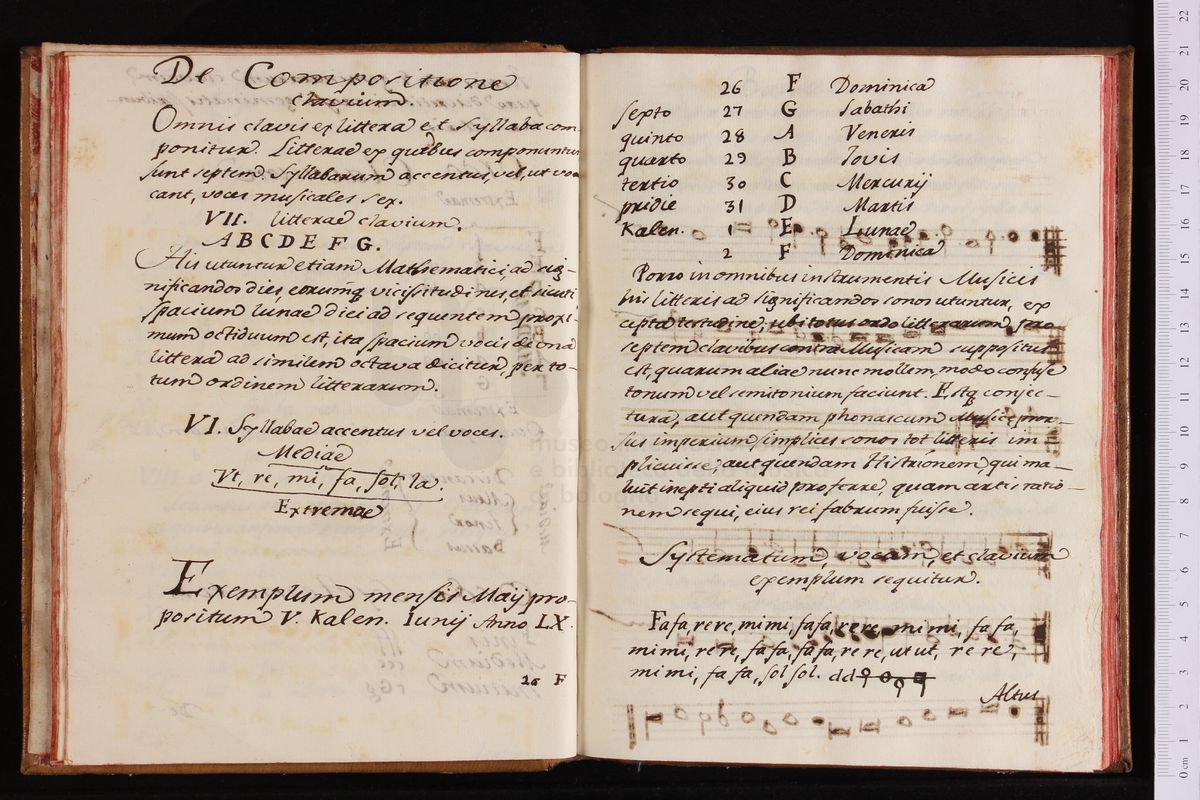 De Compositione
clavium.
Omnis clavis ex littera et syllaba com
ponitur. Litterae ex quibus componuntur
sunt septem. Syllabarum accentus, vel, ut vo
cant, voces musicales sex.
VII. litterae clavium.
A B C D E F G.
His utuntur etiam Mathematici ad sig-
nificandos dies, eorumq vicissitudines, et sicuti
spacium lunae diei ad sequentem proxi-
mum octiduum est, ita spacium vocis de una
littera ad similem octava dicitur, per to-
tum ordinem litterarum.
VI. Syllabae accentus vel voces.
Mediae
Vt, re, mi, fa, sol, la.
Extremae
Exemplum mensis Maij pro-
positum V. Kalen. Iunij Anno LX.
26 F
26 F Dominica
septo 27 G Sabathi
quinto 28 A Veneris
quarto 29 B Iovis
tertio 30 C Mercurij
pridie 31 D Martis
Kalen. 1 E Lunae
2 F Dominica
Porro in omnibus instrumentis Musicis
his litteris ad significandos sonos utuntur, ex
cepta testudine, ubi totus ordo litterarum fero
septem clavibus contra Musicam suppositus
est, quarum aliae nunc mollem, modo confuse
tonum vel semitonium faciunt. Estq conjec-
tura, aut quendam phonascum Musicę pror-
sus imperium simplices sonos tot litteris im
plicuisse; aut quendam Histrionem qui ma-
luit inepti aliquid proferre, quam artis ratio-
nem sequi, eius rei fabrum fuisse.
Systematum, vocum, et clavium
exemplum sequitur.
Fafa, re re, mi mi, fa fa, re re, mi mi, fa fa,
mi mi, re re, fa fa, fa fa, re re, ut ut, re re,
mi mi, fa fa, sol sol. dd
Altus
museo
e biblio
di bologna